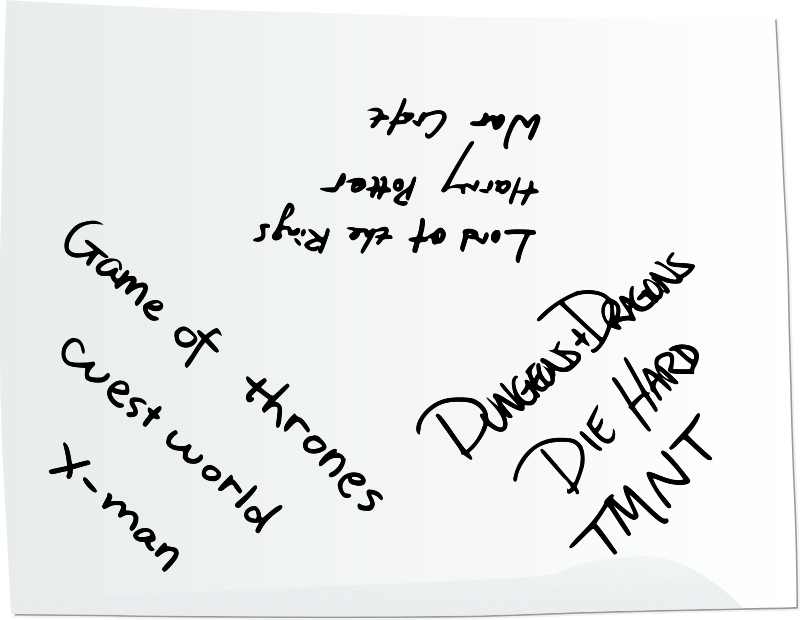 Lord of the Rings
Harry Potter
War Craft
Game of thrones
west world
X-man
DUNGEONS + DRAGONS
DIE HARD
TMNT